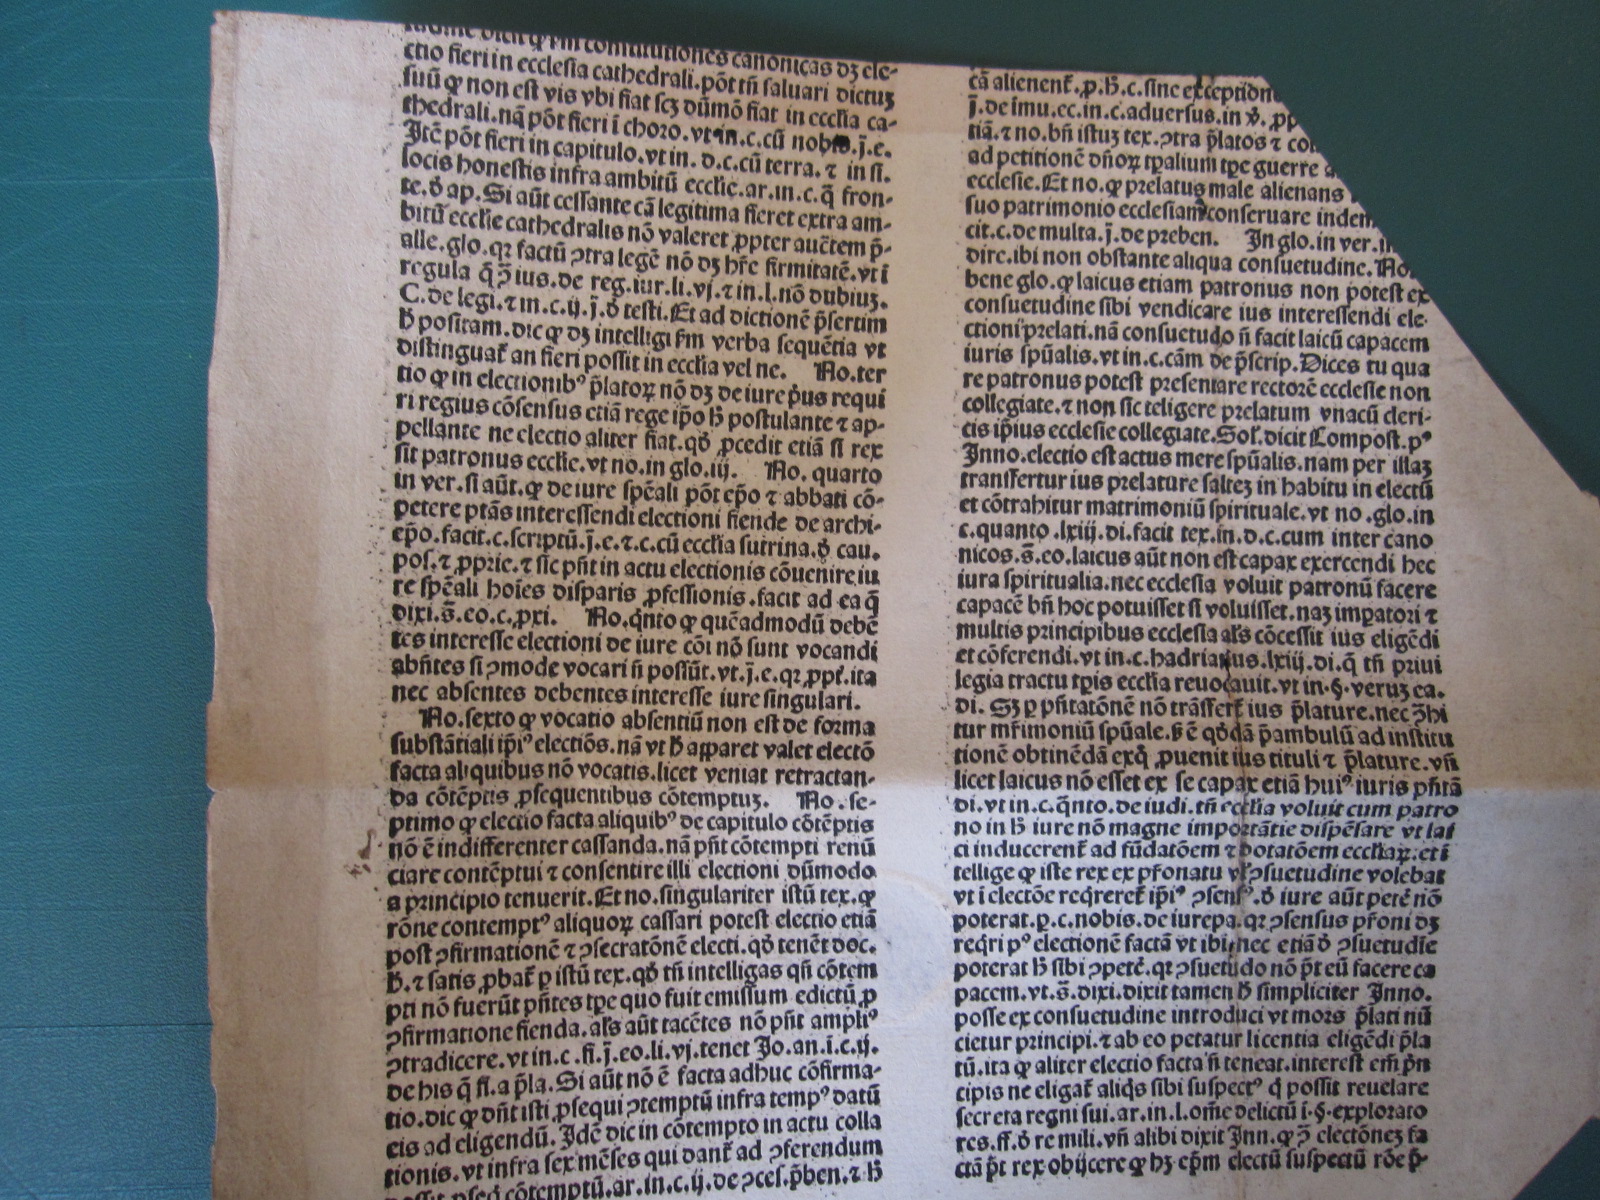 ctio fieri in ecclesia cathedrali.pōt tñ saluari dictuʒ
suū ꝙ non est vis vbi fiat scʒ dūmō fiat in ecclia ca-
thedrali.nā pōt fieri ī choro.vt in.c.cū nobis.j̄.e.
Itē pōt fieri in capitulo.vt in. d.c.cū terra. ⁊ in si.
locis honestis infra ambitū ecclie.ar.in.c.q̄ fron-
te.ð ap. Si aūt cessante cā legitima fieret extra am-
bitū ecclie cathedralis nō valeret ꝓpter auc̄tem p̄-
alle.glo.qꝛ factū ꝯtra legē nō dʒ hr̄e firmitatē.vt ī
regula q̄ ꝯ̄ ius.de reg.iur.li.vj.⁊ in.l.nō dubiuʒ.
C. de legi.⁊ in.c.ij.j̄.ð testi. Et ad dictionē p̄sertim
ħ positam.dic ꝙ dʒ intelligi ẜm verba sequētia vt
distinguat̄ an fieri possit in ecclīa vel ne. No.ter
tio ꝙ in electionibꝰ p̄latoꝝ nō dʒ de iure p̄us requi
ri regius cōsensus etiā rege ip̄o ħ postulante ⁊ ap-
pellante ne electio aliter fiat.qð ꝓcedit etiā si rex
sit patronus ecclie.vt no.in glo.iij. No. quarto
in ver.si aūt.ꝙ de iure sp̄eali pōt ep̄o ⁊ abbati cō-
petere ptās interessendi electioni fiende de archi-
ep̄o.facit.c.scriptū.j̄.e.⁊.c.cū ecclīa sutrina.ð cau.
pos.⁊ ꝓprie.⁊ sic pn̄t in actu electionis cōuenire iu
re sp̄eali hoīes disparis ꝓfessionis.facit ad ea q̄
dixi.s̄.eo.c.pxi. No.q̇nto ꝙ quēadmodū debē
tes interesse electioni de iure cōi nō sunt vocandi
abn̄tes si ꝯmode vocari n̄ possūt.vt.j̄.e.qꝛ ꝓpt̄.ita
nec absentes debentes interesse iure singulari.
No.sexto ꝙ vocatio absentiū non est de forma
substātiali ip̄iꝰ electiōs.nā vt ħ apparet valet electō
facta aliquibus nō vocatis.licet veniat retractan-
da cōtēptis ꝓsequentibus cōtemptuʒ. No.se-
ptimo ꝙ electio facta aliquibꝰ de capitulo cōtēptis
nō ē indifferenter cassanda.nā pn̄t cōtempti renū
ciare contēptui ⁊ consentire illi electioni dūmodo
a principio tenuerit. Et no.singulariter istū tex.ꝙ
rōne contemptꝰ aliquoꝝ cassari potest electio etiā
post ꝯfirmationē ⁊ ꝯsecratōnē electi.qð tenēt doc.
ħ.⁊ satis ꝓbat̄ ꝑ istū tex.qð tn̄ intelligas qn̄ cōtem
pti nō fuerūt pn̄tes tp̄e quo fuit emissum edictū ꝓ
ꝯfirmatione fienda.al̄s aūt tacētes nō pn̄t ampliꝰ
ꝯtradicere.vt in.c.fi.j̄.eo.li.vj.tenet Jo.an.ī.c.ij.
de his q̄ fi.a p̄la. Si aūt nō ē facta adhuc cōfirma-
tio.dic ꝙ dn̄t isti ꝓsequi ꝯtemptū infra tempꝰ datū
eis ad eligendū. Idē dic in cōtempto in actu colla
tionis.vt infra sex mēses qui dant̄ ad ꝯferendum
cā alienent̄.ꝓ.ħ.c.sine exception
j̄.de īmu.ec.in.c.aduersus.in ꝟ. ꝓp
tiā.⁊ no.bn̄ istuʒ tex.ꝯtra p̄latos ⁊
ad petitionē dn̄oꝝ tp̄alium tp̄e guerre
ecclesie. Et no.ꝙ prelatus male alienans
suo patrimonio ecclesiam conseruare indem
cit.c.de multa.j̄.de preben. In glo.in ver.
dire.ibi non obstante aliqua consuetudine. No.
bene glo.ꝙ laicus etiam patronus non potest ex
consuetudine sibi vendicare ius interessendi ele-
ctioni prelati.nā consuetudo n̄ facit laicū capacem
iuris spūalis.vt in.c.cām de p̄scrip. Dices tu qua
re patronus potest presentare rectorē ecclesie non
collegiate.⁊ non sic teligere prelatum vnacū cleri-
cis ip̄ius ecclesie collegiate. Sol̄.dicit Compost.pꝰ
Inno.electio est actus mere spūalis.nam per illaʒ
transfertur ius prelature salteʒ in habitu in electū
et cōtrahitur matrimoniū spirituale.vt no.glo.in
c.quanto.lxiij.di.facit tex.in.d.c.cum inter cano
nicos.s̄.eo.laicus aūt non est capax exercendi hec
iura spiritualia.nec ecclesia voluit patronū facere
capacē bn̄ hoc potuisset si voluisset.naʒ impatori ⁊
multis principibus ecclesia al̄s cōcessit ius eligēdi
et cōferendi.vt in.c.hadrianus.lxiij.di.q̄ tn̄ priui
legia tractu tp̄is ecclīa reuocauit.vt in.§.veruʒ ea.
di. Sʒ ꝑ pn̄tatōnē nō trāsfert̄ ius p̄lature.nec ꝯ̄hi
tur mr̄imoniū spūale.ẜ ē qðā p̄ambulū ad institu
tionē obtinēdā exq̇ ꝓuenit ius tituli ⁊ p̄lature.vn̄
licet laicus nō esset ex se capax etiā huiꝰ iuris pn̄tā
di.vt in.c.q̄nto.de iudi.tn̄ ecclīa voluit cum patro
no in ħ iure nō magne importātie dispēsare vt lai
ci inducerent̄ ad fūdatōem ⁊ dotatōem ecclīaꝝ.et ī
tellige ꝙ iste rex ex pr̄onatu vl̄ ꝯsuetudine volebat
vt ī electōe req̇reret̄ ip̄iꝰ ꝯsensꝰ.ð iure aūt petē nō
poterat.ꝑ.c.nobis.de iurepa.qꝛ ꝯsensus pr̄oni dʒ
req̇ri pꝰ electionē factā vt ibi.nec etiā ð ꝯsuetudīe
poterat ħ sibi ꝯpetē.qꝛ ꝯsuetudo nō p̄t eū facere ca
pacem.vt.s̄.dixi.dixit tamen ħ simpliciter Inno.
posse ex consuetudine introduci vt mors p̄lati nū
cietur principi.⁊ ab eo petatur licentia eligēdi p̄la
tū.ita ꝙ aliter electio facta n̄ teneat.interest em̄ p̄n
cipis ne eligat̄ aliq̇s sibi suspectꝰ q̇ possit reuelare
secreta regni sui.ar.in.l.om̄e delictū ī.§.explorato
res.ff.ð re mili.vn̄ alibi dixit Inn.ꝙ ꝯ̄ electōneʒ fa
ctā p̄t rex obijcere ꝙ hʒ ep̄m electū suspectū rōe p̄-